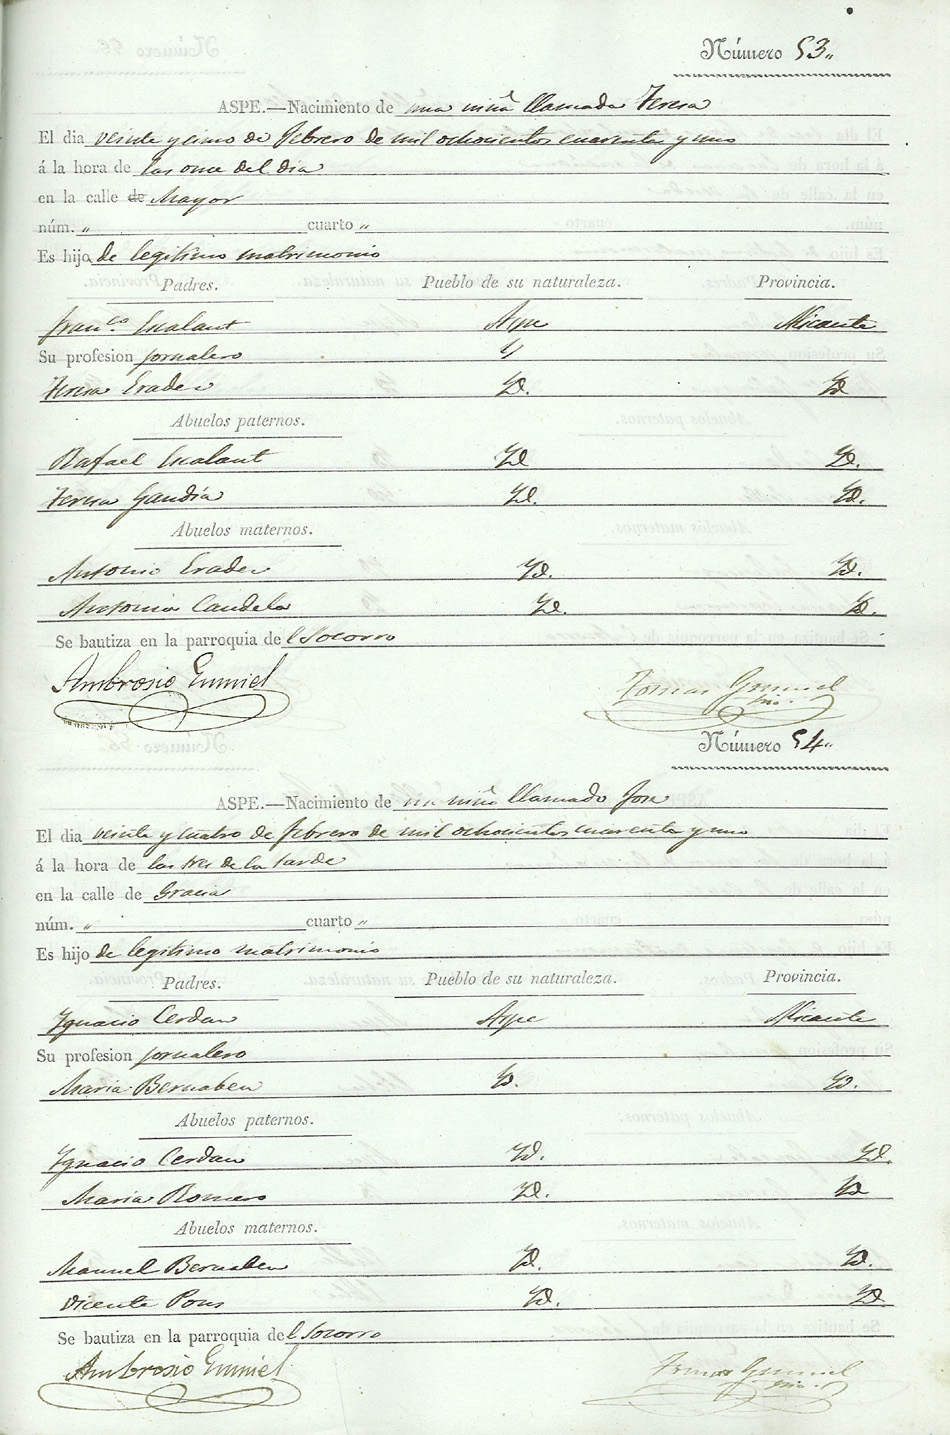 Número 53„
ASPE.—Nacimiento de una niña llamada Teresa
El dia veinte y cinco de febrero de mil ochocientos cuarenta y uno
á la hora de las once del dia
en la calle de Mayor
núm. „ cuarto „
Es hijo de legitimo matrimonio
Padres. Pueblo de su naturaleza. Provincia.
Franco Escalant Aspe Alicante
Su profesion jornalero
Teresa Erades Yd. Yd
Abuelos paternos.
Rafael Escalant Yd Yd.
Teresa Gandía Yd. Yd.
Abuelos maternos.
Antonio Erades Yd. Yd.
Antonia Candela Yd. Yd.
Se bautiza en la parroquia del Socorro
Ambrosio Gumiel Tomas Gumiel
Número 54„
ASPE.—Nacimiento de un niño llamado Jose
El dia veinte y cuatro de febrero de mil ochocientos cuarenta y uno
á la hora de las tres de la tarde
en la calle de Gracia
núm. „ cuarto „
Es hijo de legitimo matrimonio
Padres. Pueblo de su naturaleza. Provincia.
Ygnacio Cerdan Aspe Alicante
Su profesion jornalero
Maria Bernabeu Yd. Yd.
Abuelos paternos.
Ygnacio Cerdan Yd. Yd.
Maria Romero Yd. Yd
Abuelos maternos.
Manuel Bernabeu Yd. Yd.
Vicenta Pons Yd. Yd.
Se bautiza en la parroquia del Socorro
Ambrosio Gumiel Tomas Gumiel